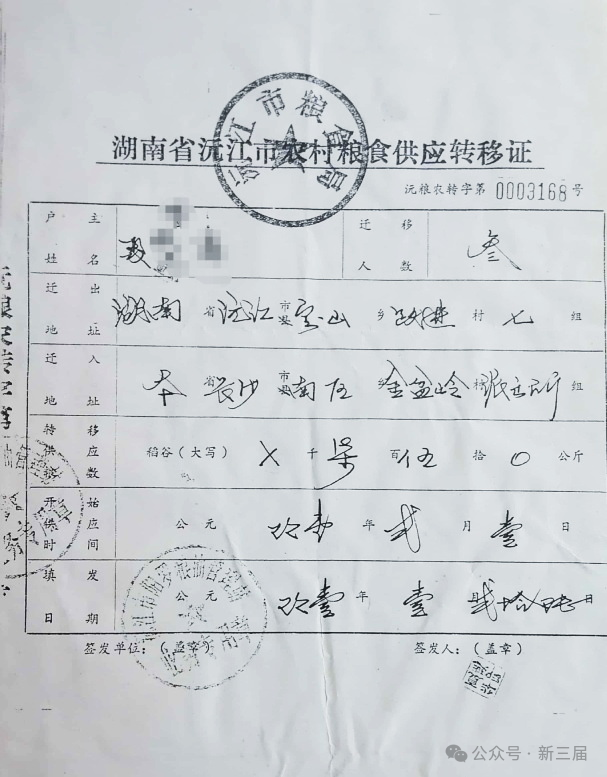 沅江市粮食局
湖南省沅江市农村粮食供应转移证
沅粮农转字第 0003168 号
户主姓名 迁移人数 叁
迁出地址 湖南 省 沅江 市县 宝山 乡 跃进 村 七 组
迁入地址 本 省 长沙 市县 南区 乡 金盆岭 村 派出所 组
转移供应数 稻谷（大写） X 千 柒 百 伍 拾 0 公斤
开始供应时间 公元 年 贰 月 壹 日
填发日期 公元 玖壹 年 壹 月 贰拾 日
签发单位：（盖章） 签发人：（盖章）
公众号·新三届